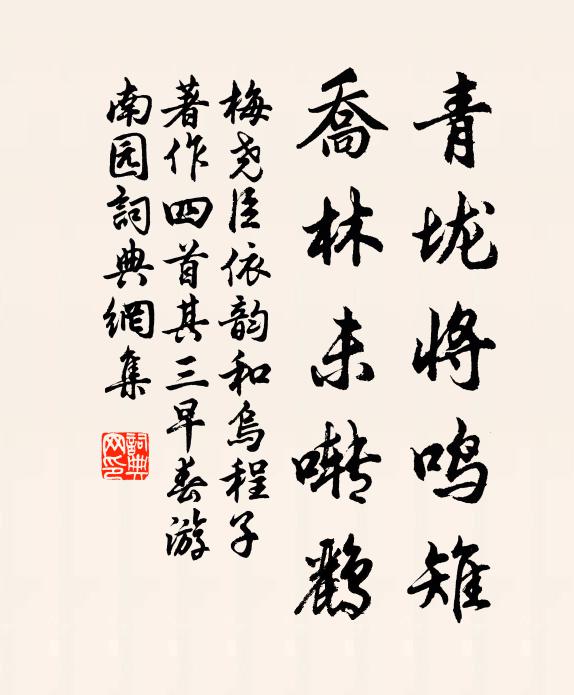 青垅将鸣雉
喬林未啭鸝
梅尧臣依韵和烏程子
著作四首其三早春游
南园詞典網集
詞典网印